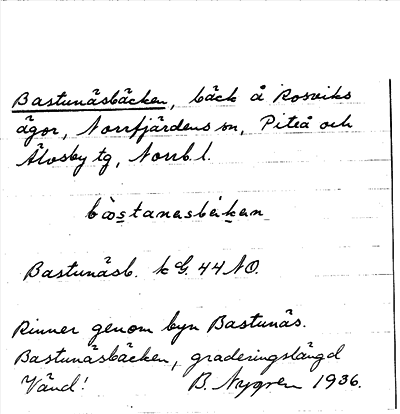 Bastunäsbäcken, bäck å Rosviks
ägor, Norrfjärdens sn, Piteå och
Älvsby tg, Norrb. l.
Bastunäsb. kG. 44 NO.
Rinner genom byn Bastunäs.
Bastunäsbäcken, graderingslängd
Vänd! B. Nygren 1936.